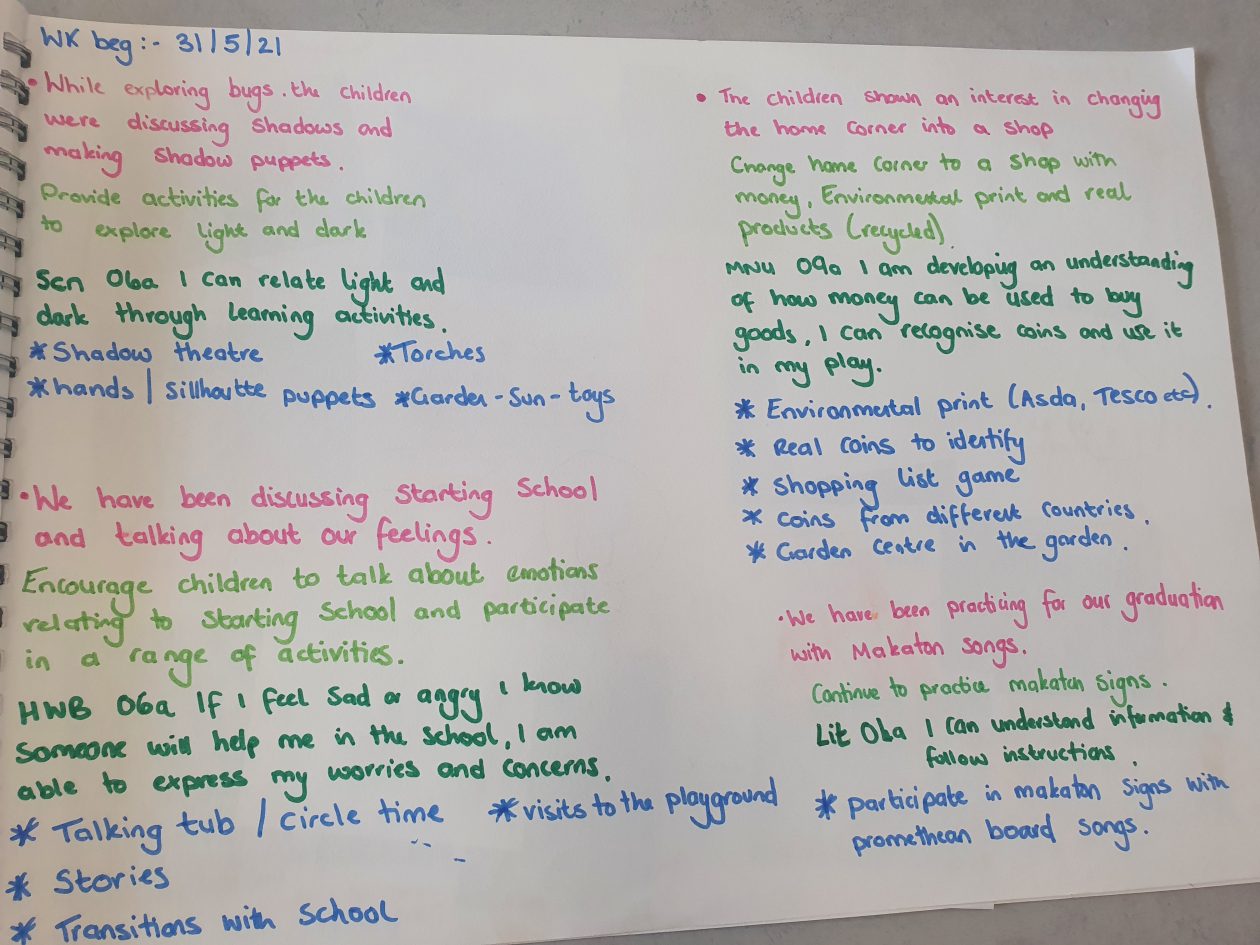 WK beg:- 31/5/21
• While exploring bugs. the children
were discussing shadows and
making shadow puppets.
Provide activities for the children
to explore light and dark
Scn 06a I can relate light and
dark through learning activities.
*Shadow theatre *Torches
*hands | Sillhoutte puppets *Garden-Sun-toys
• We have been discussing Starting School
and talking about our feelings.
Encourage children to talk about emotions
relating to starting School and participate
in a range of activities.
HWB 06a If I feel sad or angry I know
someone will help me in the school, I am
able to express my worries and concerns.
* Talking tub / circle time * visits to the playground
* Stories
* Transitions with School
• The children shown an interest in changing
the home corner into a shop
Change home corner to a shop with
money, Environmental print and real
products (recycled).
MNU 09a I am developing an understanding
of how money can be used to buy
goods, I can recognise coins and use it
in my play.
* Environmental print (Asda, Tesco etc).
* Real coins to identify
* Shopping list game
* Coins from different countries.
* Garden centre in the garden.
• We have been practicing for our graduation
with Makaton songs.
Continue to practice makaton signs.
Lit 06a I can understand information &
follow instructions.
* participate in makaton signs with
promethean board songs.